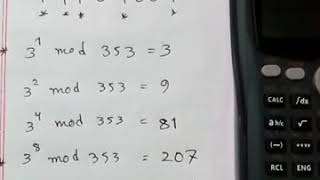 * 3^1 mod 353 = 3
3^2 mod 353 = 9
3^4 mod 353 = 81
* 3^8 mod 353 = 207
CALC ∫dx
ab/c √
(—)
RCL ENG